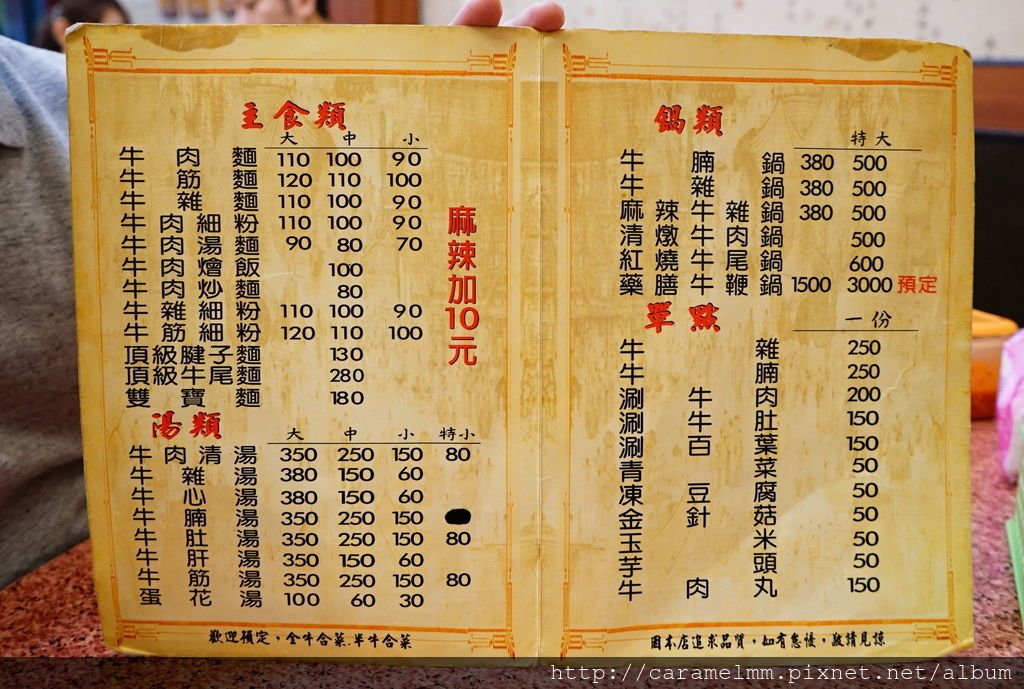 主食類
大 中 小
牛肉麵 110 100 90
牛筋麵 120 110 100
牛雜麵 110 100 90
牛肉細粉 110 100 90
牛肉湯麵 90 80 70
牛肉燴飯 100
牛肉炒麵 80
牛雜細粉 110 100 90
牛筋細粉 120 110 100
頂級腱子麵 130
頂級牛尾麵 280
雙寶麵 180
麻辣加10元
湯類
大 中 小 特小
牛肉清湯 350 250 150 80
牛雜湯 380 150 60
牛心湯 380 150 60
牛腩湯 350 250 150
牛肚湯 350 250 150 80
牛肝湯 350 150 60
牛筋湯 350 250 150 80
蛋花湯 100 60 30
歡迎預定，全牛合菜.半牛合菜
鍋類
特大
牛腩鍋 380 500
牛雜鍋 380 500
麻辣牛雜鍋 380 500
清燉牛肉鍋 500
紅燒牛尾鍋 600
藥膳牛鞭鍋 1500 3000 預定
單點
一份
牛雜 250
牛腩 250
涮牛肉 200
涮牛肚 150
涮百葉 150
青菜 50
凍豆腐 50
金針菇 50
玉米 50
芋頭 50
牛肉丸 150
因本店追求品質，如有怠慢，敬請見諒
http://caramelmm.pixnet.net/album